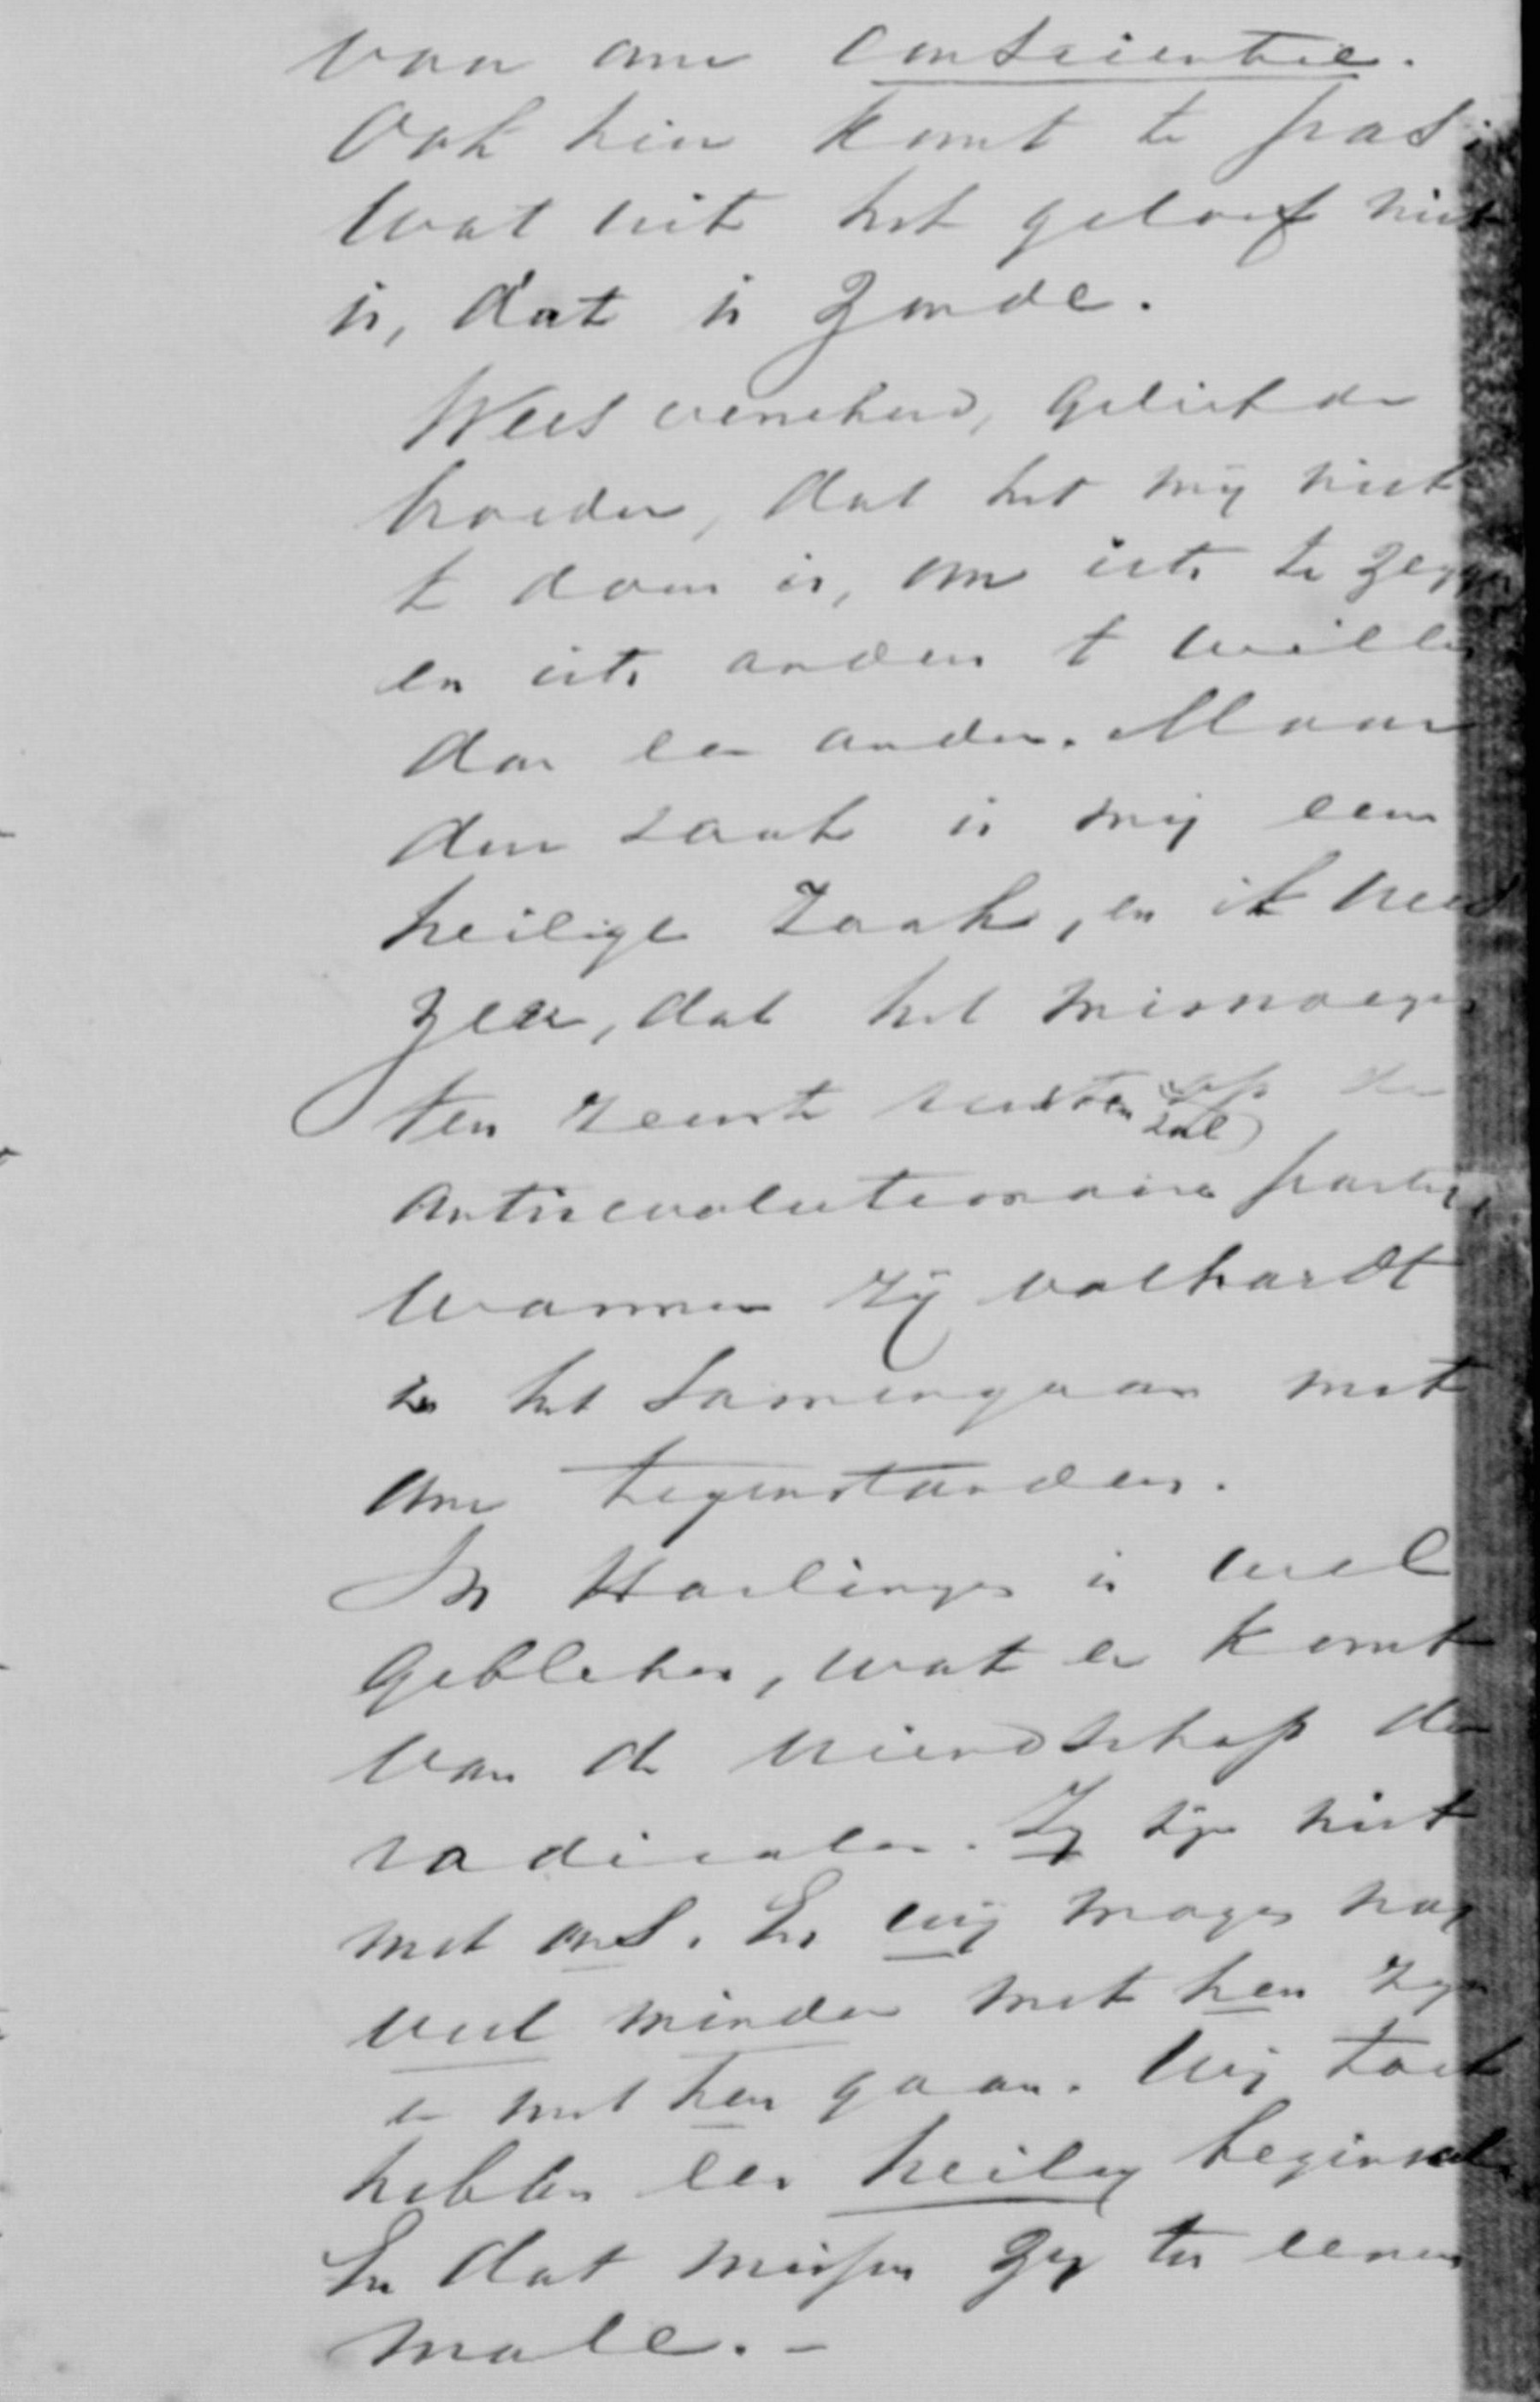 van onze conscientie.
Ook hier komt te pas:
Wat uit het geloof niet
is, dat is zonde.
Wees verzekerd, geliefde
broeder, dat het mij niet
te doen is, om iets te zeggen
en iets anders te willen
dan een ander. Maar
deze zaak is mij eene
heilige zaak, en ik vrees
zeer, dat het misnoegen
ten zeerste rusten zal op de
antirevolutionaire partij,
wanneer zij volhardt
in het samengaan met
onze tegenstanders.
In Harlingen is wel
gebleken, wat er komt
van de vriendschap der
radicalen. Zij zijn niet
met ons. En wij mogen nog
veel minder met hen zijn
en met hen gaan. Wij toch
hebben een heilig beginsel.
En dat missen zij ten eenen
male. -